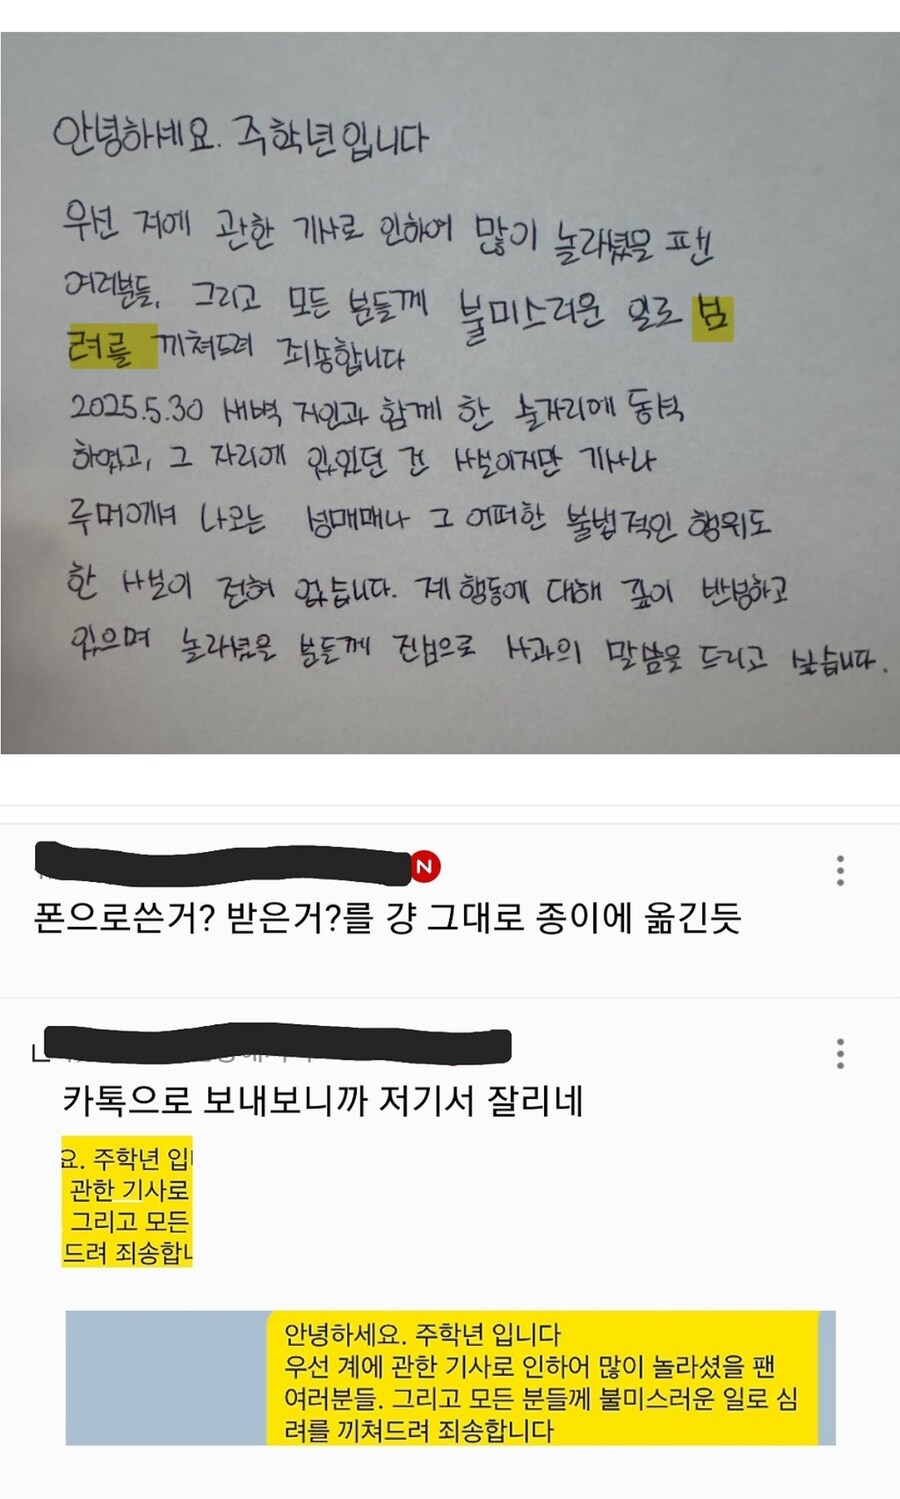 안녕하세요. 주학년입니다
우선 저에 관한 기사로 인하여 많이 놀라셨을 팬
여러분들, 그리고 모든 분들께 불미스러운 일로 심
려를 끼쳐드려 죄송합니다
2025.5.30 새벽 지인과 함께 한 술자리에 동석
하였고, 그 자리에 있었던 건 사실이지만 기사나
루머에서 나오는 성매매나 그 어떠한 불법적인 행위도
한 사실이 전혀 없습니다. 제 행동에 대해 깊이 반성하고
있으며 놀라셨을 분들께 진심으로 사과의 말씀을 드리고 싶습니다.
N
폰으로쓴거? 받은거?를 걍 그대로 종이에 옮긴듯
카톡으로 보내보니까 저기서 잘리네
요. 주학년 입
관한 기사로
그리고 모든
드려 죄송합
안녕하세요. 주학년 입니다
우선 계에 관한 기사로 인하어 많이 놀라셨을 팬
여러분들. 그리고 모든 분들께 불미스러운 일로 심
려를 끼쳐드려 죄송합니다